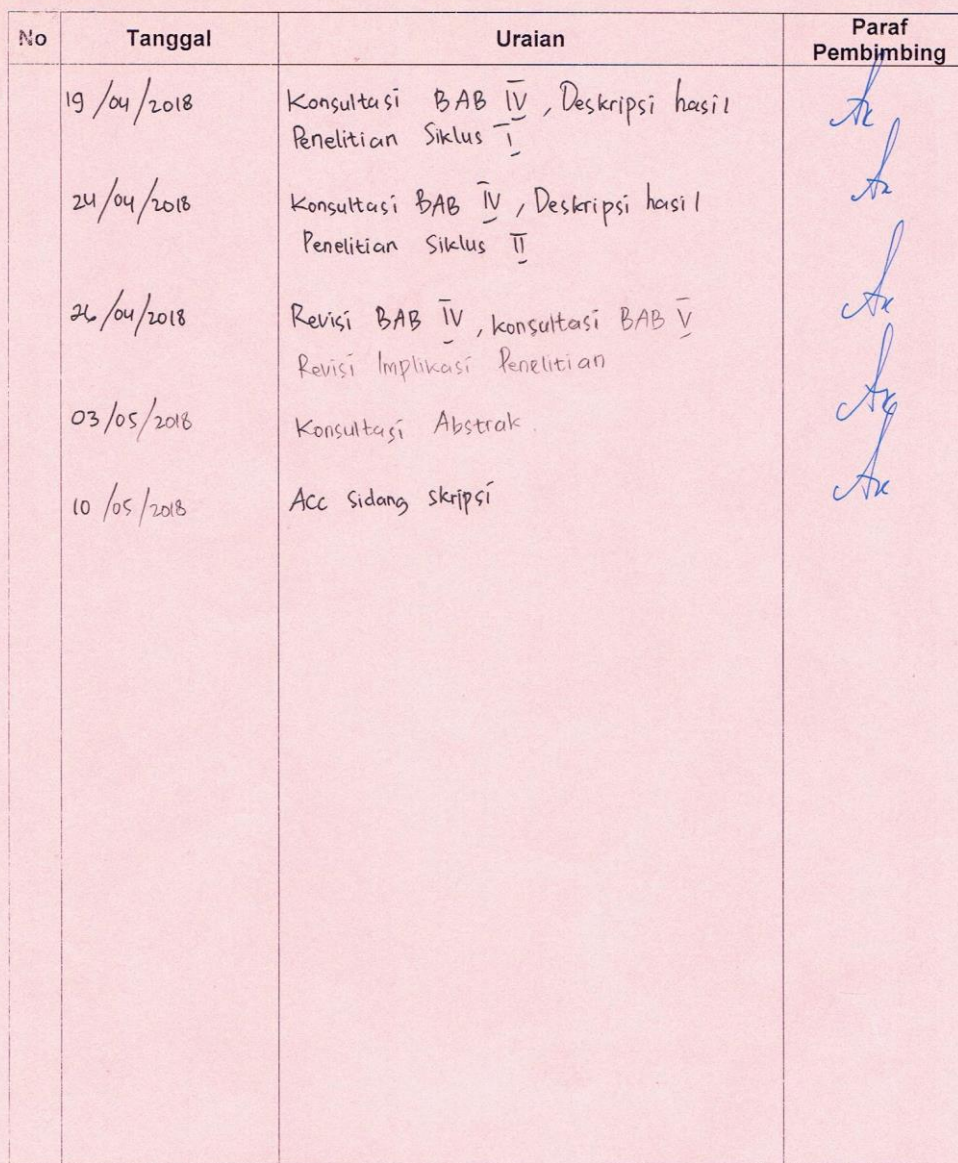 No Tanggal Uraian Paraf
Pembimbing
19/04/2018 Konsultasi BAB IV, Deskripsi hasil
Penelitian Siklus I
24/04/2018 Konsultasi BAB IV, Deskripsi hasil
Penelitian Siklus II
26/04/2018 Revisi BAB IV, konsultasi BAB V
Revisi Implikasi Penelitian
03/05/2018 Konsultasi Abstrak.
10/05/2018 Acc sidang skripsi